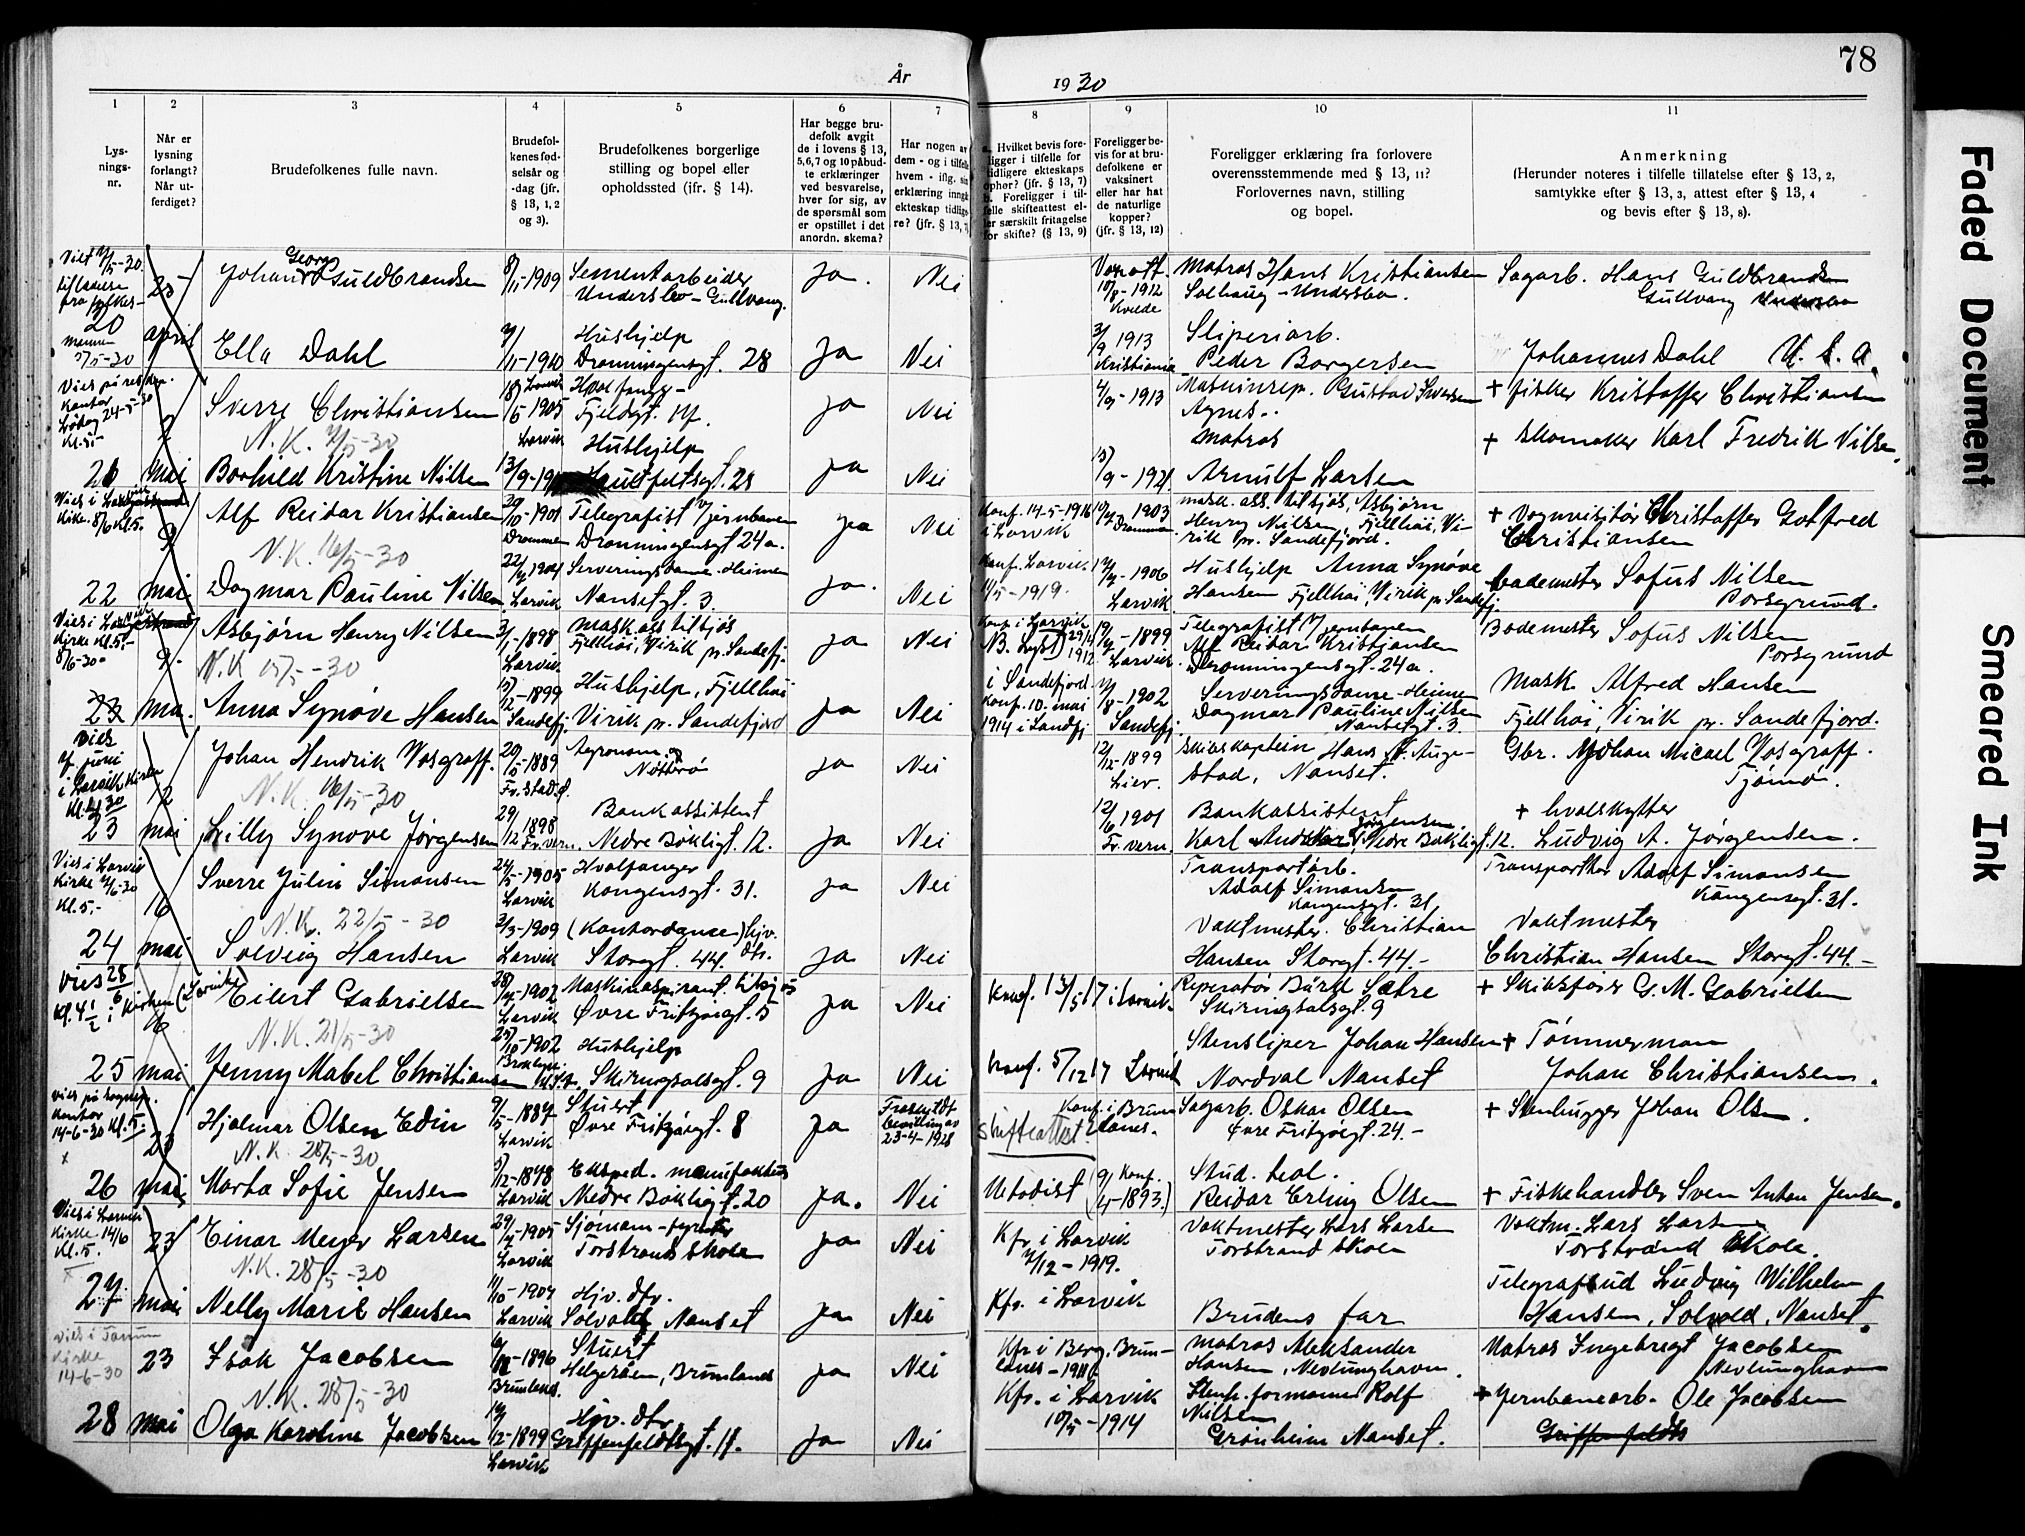 78
År
1930
1
2
3
4
5
6
7
8
9
10
11
Lys-
nings-
nr.
Når er
lysning
forlangt?
Når ut-
ferdiget?
Brudefolkenes fulle navn.
Brudefol-
kenes fød-
selsår og
-dag (jfr.
§ 13, 1, 2
og 3).
Brudefolkenes borgerlige
stilling og bopel eller
opholdssted (jfr. § 14).
Har begge bru-
defolk avgit
de i lovens § 13,
5,6,7 og 10 påbud-
te erklæringer
ved besvarelse,
hver for sig, av
de spørsmål som
er opstillet i det
anordn. skema?
Har nogen av
dem - og i tilfelle
hvem - iflg. sin
erklæring inngå
ekteskap tidlige-
re? (jfr. § 13, 7
Hvilket bevis fore-
ligger i tilfelle for
tidligere ekteskaps
ophør? (jfr. § 13, 7)
b. Foreligger i til-
felle skifteattest el-
ler særskilt fritagelse
for skifte? (§ 13, 9)
Foreligger be-
vis for at bru-
defolkene er
vaksinert
eller har hat
de naturlige
kopper?
(jfr. § 13, 12)
Foreligger erklæring fra forlovere
overensstemmende med § 13, 11?
Forlovernes navn, stilling
og bopel.
Anmerkning
(Herunder noteres i tilfelle tillatelse efter § 13, 2,
samtykke efter § 13, 3, attest efter § 13, 4
og bevis efter § 13, 8).
20
25
april
Georg
Johan Guldbrandsen
-1909
Sementarbeider
Underslev - Gullvang.
Ja.
Nei
10/8-1912
Kvelde
Matros Hans Kristiansen
Solhaug - Underslev.
Sagarb. Hans Guldbrandsen
Gullvang
Ella Dahl
Hushjelp
Dronningensgt. 28
Ja
Nei
3/9 1913
Kristiania
Sliperiarb.
Peder Borgersen
Johannes Dahl U. S. A.
24-5-30
Kl. 5.-
mai
Sverre Christiansen
1905
Larvik
Hvalfanger -
Ja
Nei
-1913
Agnes..
+ fisker Kristoffer Christiansen
Borhild Kristine Nilsen
13/9-19
Hushjelp
Ja
Nei
Matros
Arnulf Larsen
+ Skomaker Karl Fredrik Nilsen.
22
9
mai
Alf Reidar Kristiansen
N.K. 16/5-30
-1901
Drammen
Telegrafist v/ jernbanen
Dronningensgt 24a.
ja
Nei
Konf. 14-5-1916
i Larvik
1903
Drammen.
mask. ass. til sjøs, Asbjørn
Henry Nilsen, Fjellhøi, Vi-
rik pr. Sandefjord.
+ Vognvisitør Christoffer Gotfred
Christiansen
Dagmar Pauline Nilsen
22/4 1904
Larvik
Serveringsdame - Heimen
Nansetgt. 3.
ja.
Nei
Konf. Larvik
11/5-1919.
-1906
Larvik
Hushjelp Anna Synøve
Hansen Fjellhøi, Virik pr. Sandefj.
Bademester Sofus Nilsen
Porsgrund.
23
9.
ma.
Asbjørn Henry Nilsen
N.K 15/5-30
3/1-1898
Larvik
Mask. ass til sjøs
Fjellhøi, Virik pr. Sandefj.
ja
Nei
Konf. i Larvik
1912
-1899
Larvik.
Telegrafist v/ jernbanen
Alf Reidar Kristiansen
Dronningensgt. 24a.
Bademester Sofus Nilsen
Porsgrund
Anna Synøve Hansen
15/12-1899
Sandefj.
Hushjelp, Fjellhøi
Virik pr. Sandefjord
ja
Nei
i Sandefjord
Konf. 10. mai
1914 i Sandfj
-1902
Sandefj
Serveringsdame - Heimen
Dagmar Pauline Nilsen
Nansetgt. 3.
Mask Alfred Hansen
Fjellhøi, Virik pr. Sandefjord.
23
12
mai
Johan Hendrik Vosgraff.
N.K. 16/5-30
20/5-1889
Fr.stad.
Agronom,
Nøtterø
ja
Nei
12/12-1899
Lier.
Skibskaptein Hans A. Auge-
stad, Nanset.
Gbr. Johan Micael Vosgraff.
Tjømø.
Lilly Synøve Jørgensen
29/12 1898
Fr.vern.
Bankassistent
Nedre Bøkligt. 12.
ja
Nei
12/6 1901
Fr. vern.
Bankassistent
Karl Jørgensen, Nedre Bøkligt. 12.
+ hvalskytter
Ludvig A. Jørgensen.
Vies i Larvik
Kirke
Kl. 5.-
24
16
mai
Sverre Julin Simonsen
N.K. 22/5-30
24/5-1905
Larvik
Hvalfanger
Kongensgt. 31.
ja
Nei
Transportarb.
Adolf Simonsen
Kongensgt. 31,
Adolf Simonsen
Kongensgt. 31.
Solveig Hansen
2/3-1909
Larvik
(Kontordame) hjv. dtr.
Storgt. 44.
ja
Nei
Vaktmester. Christian
Hansen Storgt. 44.-
Vaktmester
Christian Hansen Storgt. 44.-
vies 28/6
Kl. 4 1/2 i Kirken (Larvik)
25
16
mai
Eilert Gabrielsen
N.K. 21/5-30
-1902
Larvik
Maskinaspirant til sjøs
Øvre Fritzøegt. 5
ja
Nei
Konf. 13/5 17 i Larvik.
Reperatør Bård Sætre
Skiringsalsgt. 9
+ Skibsfører G. M. Gabrielsen
Jenny Mabel Christiansen
25/10-1902
Hushjelp
Skiringsalsgt. 9
ja
Nei
Konf. 5/12 17 Larvik
Stensliper Johan Hansen
Nordval Nanset
+ Tømmerman
Johan Christiansen.
14-6-30 Kl. 5.
26
23
mai
Hjalmar Olsen Edin
N.K. 28/5-30
-1887
Larvik
Stuert
Øvre Fritzøegt. 8
ja
Fraskilt
bevilling av
23-4-1928
Skifteattest
Konf. i Brun-
lanes.
Sagarb. Oskar Olsen
Øvre Fritzøegt. 24.-
+ Stenhugger Johan Olsen.
Marta Sofie Jensen
-1878
Larvik
Eksped. manufaktur
Nedre Bøkligt. 20
ja.
Nei
Metodist
(9/4 Konf. 1893.)
Stud. teol.
Reidar Erling Olsen
+ Fiskehandler Sven Anton Jensen.
Vies i Larvik
Kirke 14/6
Kl. 5.
27
23
mai
Einar Meyer Larsen
N.K. 28/5-30
-1905
Larvik
Sjømann - fyrbøter
Torstrand skole
ja
Nei
Kfr i Larvik
-1919.
Vaktmester Lars Larsen
Torstrand skole
Vaktm. Lars Larsen
Torstrand Skole.
Nelly Marit Hansen
11/10-1904
Larvik
Hjv. dtr.
Solvold Nanset
ja
Nei
Kfr. i Larvik
Brudens far
Telegrafbud Ludvig Wilhelm
Hansen, Solvold, Nanset.
vies i Tanum
Kirke
14-6-30
28
23
mai
Isak Jacobsen
N.K. 28/5-30
-1896
Brunlanes.
Stuert
Helgerøen, Brunlanes
ja
Nei
Kfr i Berg, Brun-
lanes -1911
Matros Aleksander
Hansen, Nevlunghavn.
Matros Ingebregt Jacobsen
Nevlunghavn
Olga Karoline Jacobsen
-1899
Larvik
Hjv. dtr
Griffenfeldtsgt. 11.
ja
Nei
Kfr. i Larvik
10/5-1914
Stenh. formann Rolf
Nilsen
Grønheim Nanset.
+ Jernbanearb. Ole Jacobsen
Griffenfeldts
Faded Document
Smeared Ink